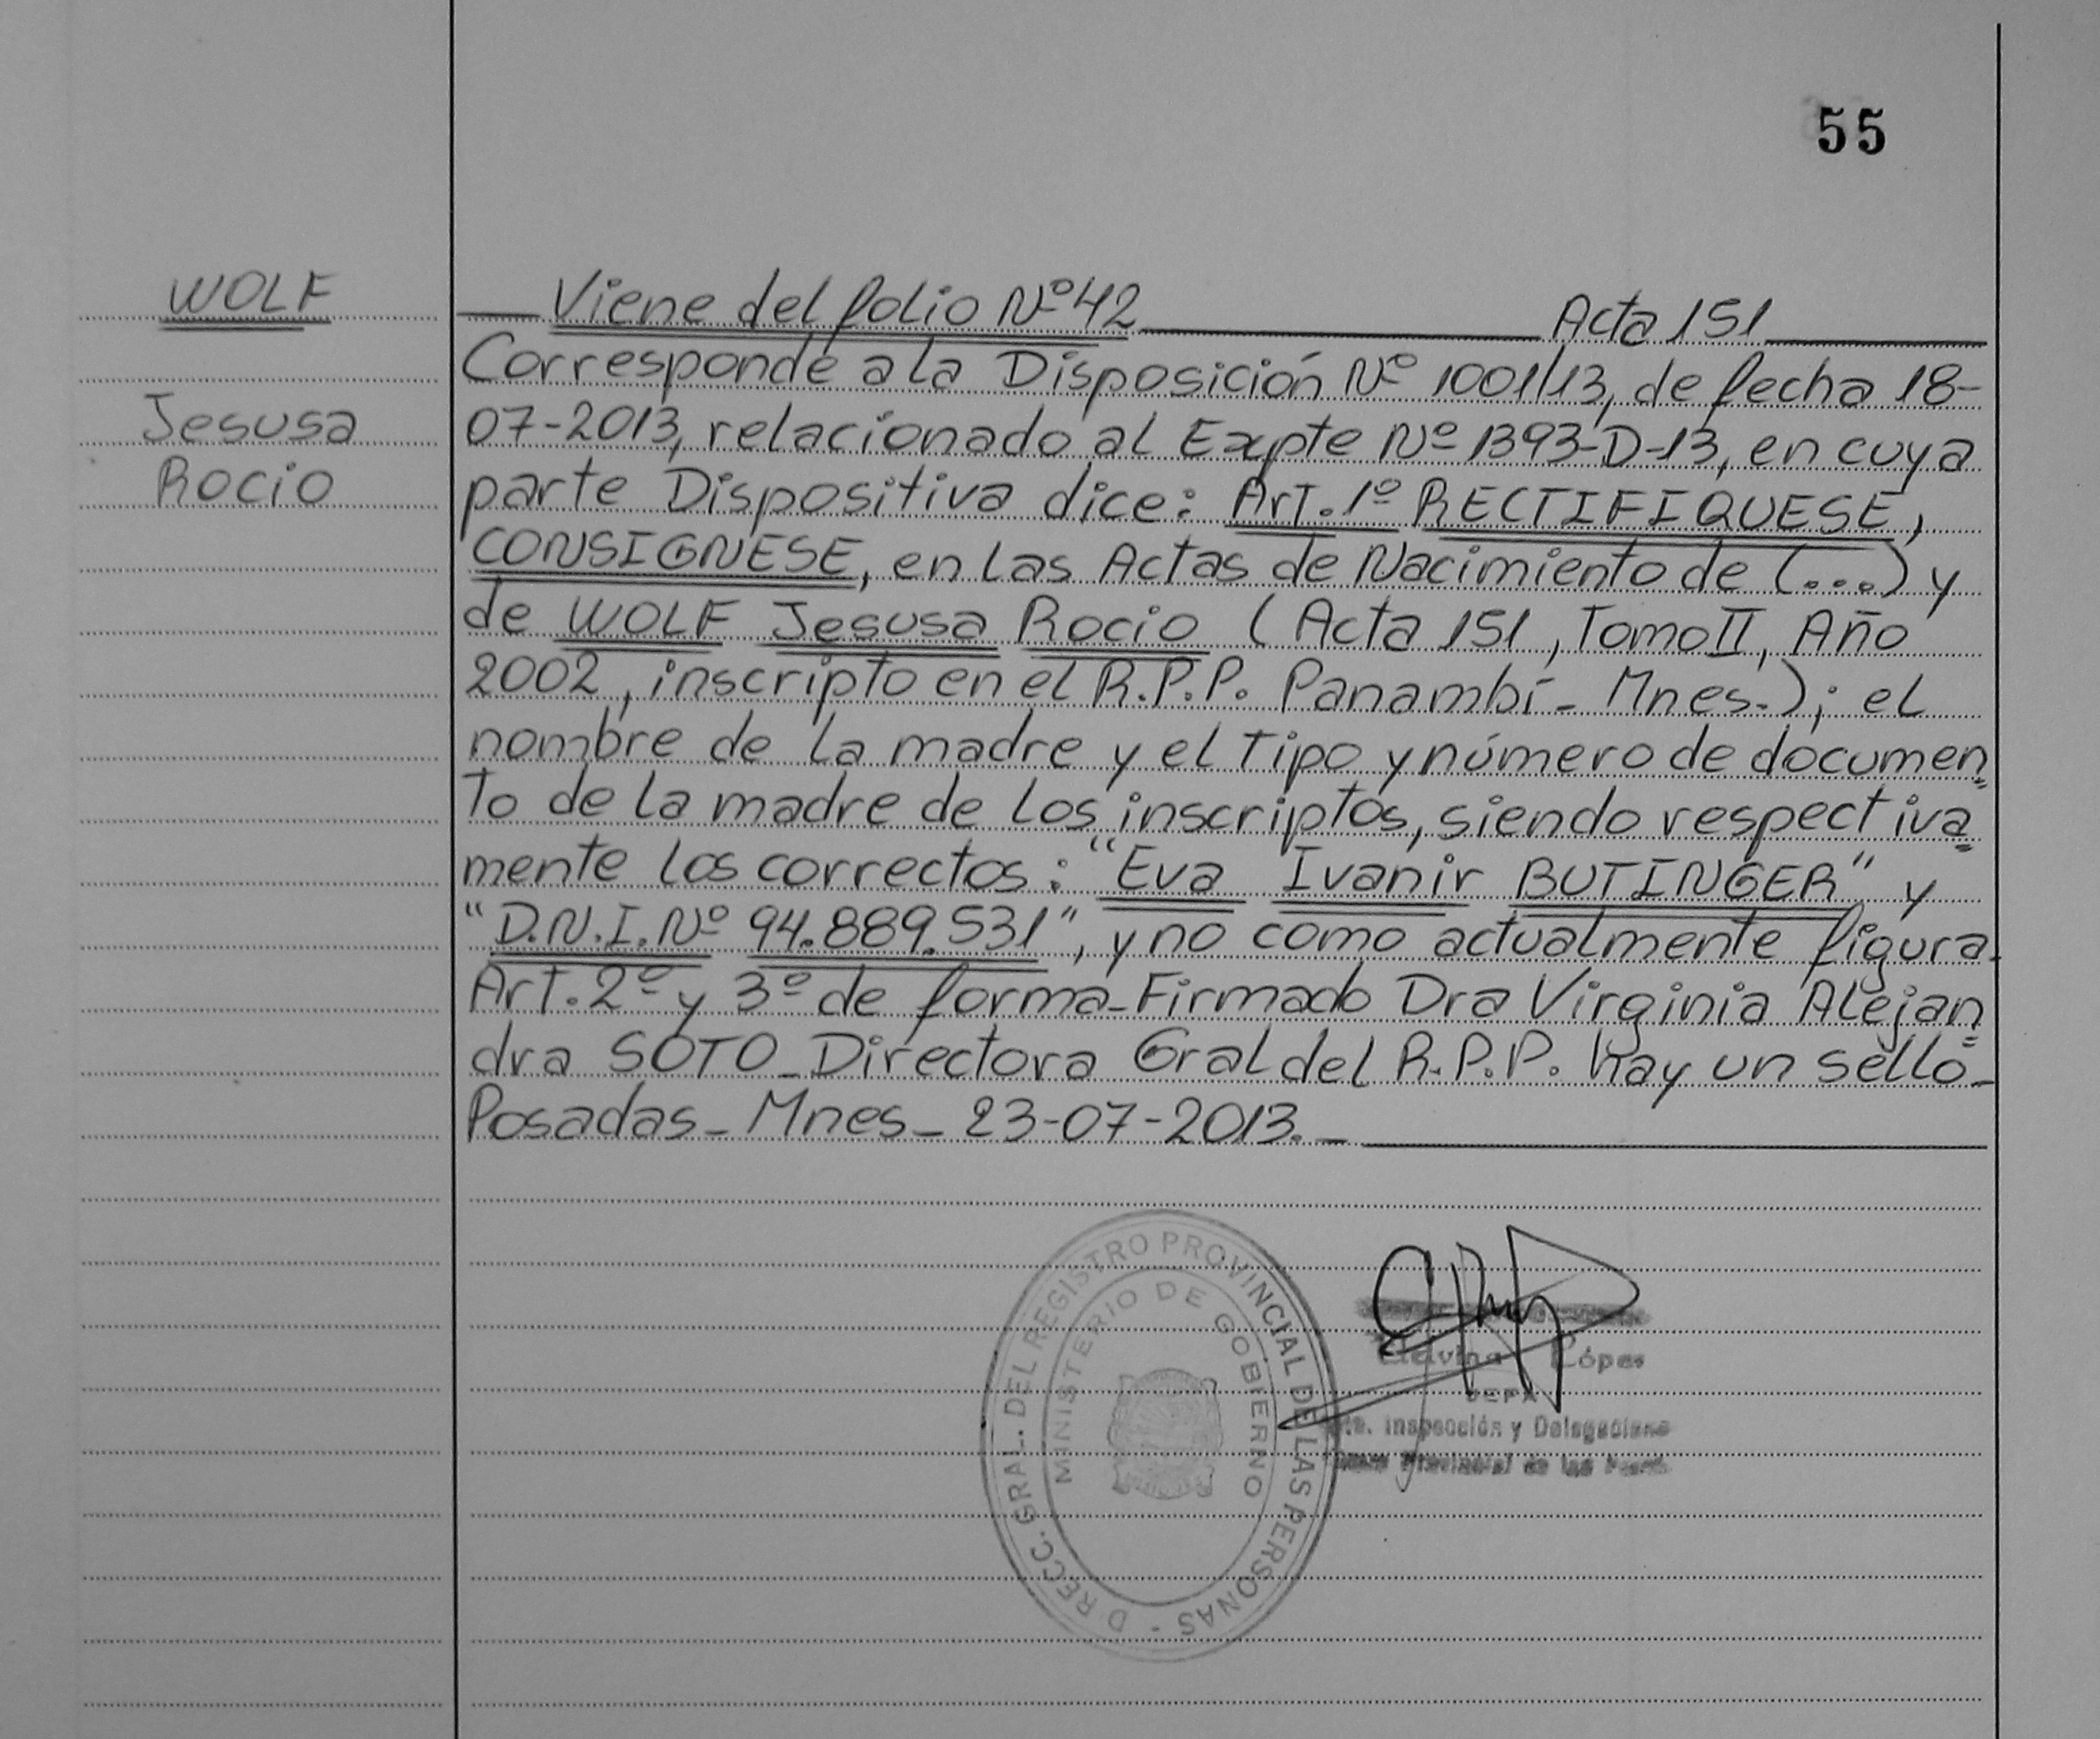 55
WOLF
Jesusa
Rocio
Viene del folio Nº 42 Acta 151
Corresponde a la Disposición Nº 1001/13, de fecha 18-
07-2013, relacionado al Expte Nº 1393-D-13, en cuya
parte Dispositiva dice: Art. 1º RECTIFIQUESE,
CONSIGNESE, en las Actas de Nacimiento de (...) y
de WOLF Jesusa Rocio (Acta 151, Tomo II, Año
2002, inscripto en el R.P.P. Panambí - Mnes.); el
nombre de la madre y el Tipo y número de documen=
to de la madre de los inscriptos, siendo respectiva=
mente los correctos: "Eva Ivanir BUTINGER" y
"D.N.I. Nº 94.889.531", y no como actualmente figura.
Art. 2º y 3º de forma - Firmado Dra Virginia Alejan=
dra SOTO - Directora Gral del R.P.P. Hay un sello -
Posadas - Mnes - 23-07-2013. -
DIRECC. GRAL. DEL REGISTRO PROVINCIAL DE LAS PERSONAS -
MINISTERIO DE GOBIERNO
López
JEFA
Inspección y Delegaciones
Provincial de las